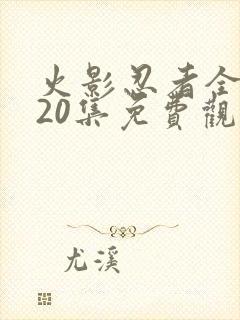 火影忍者全
20集免費觀
尤溪